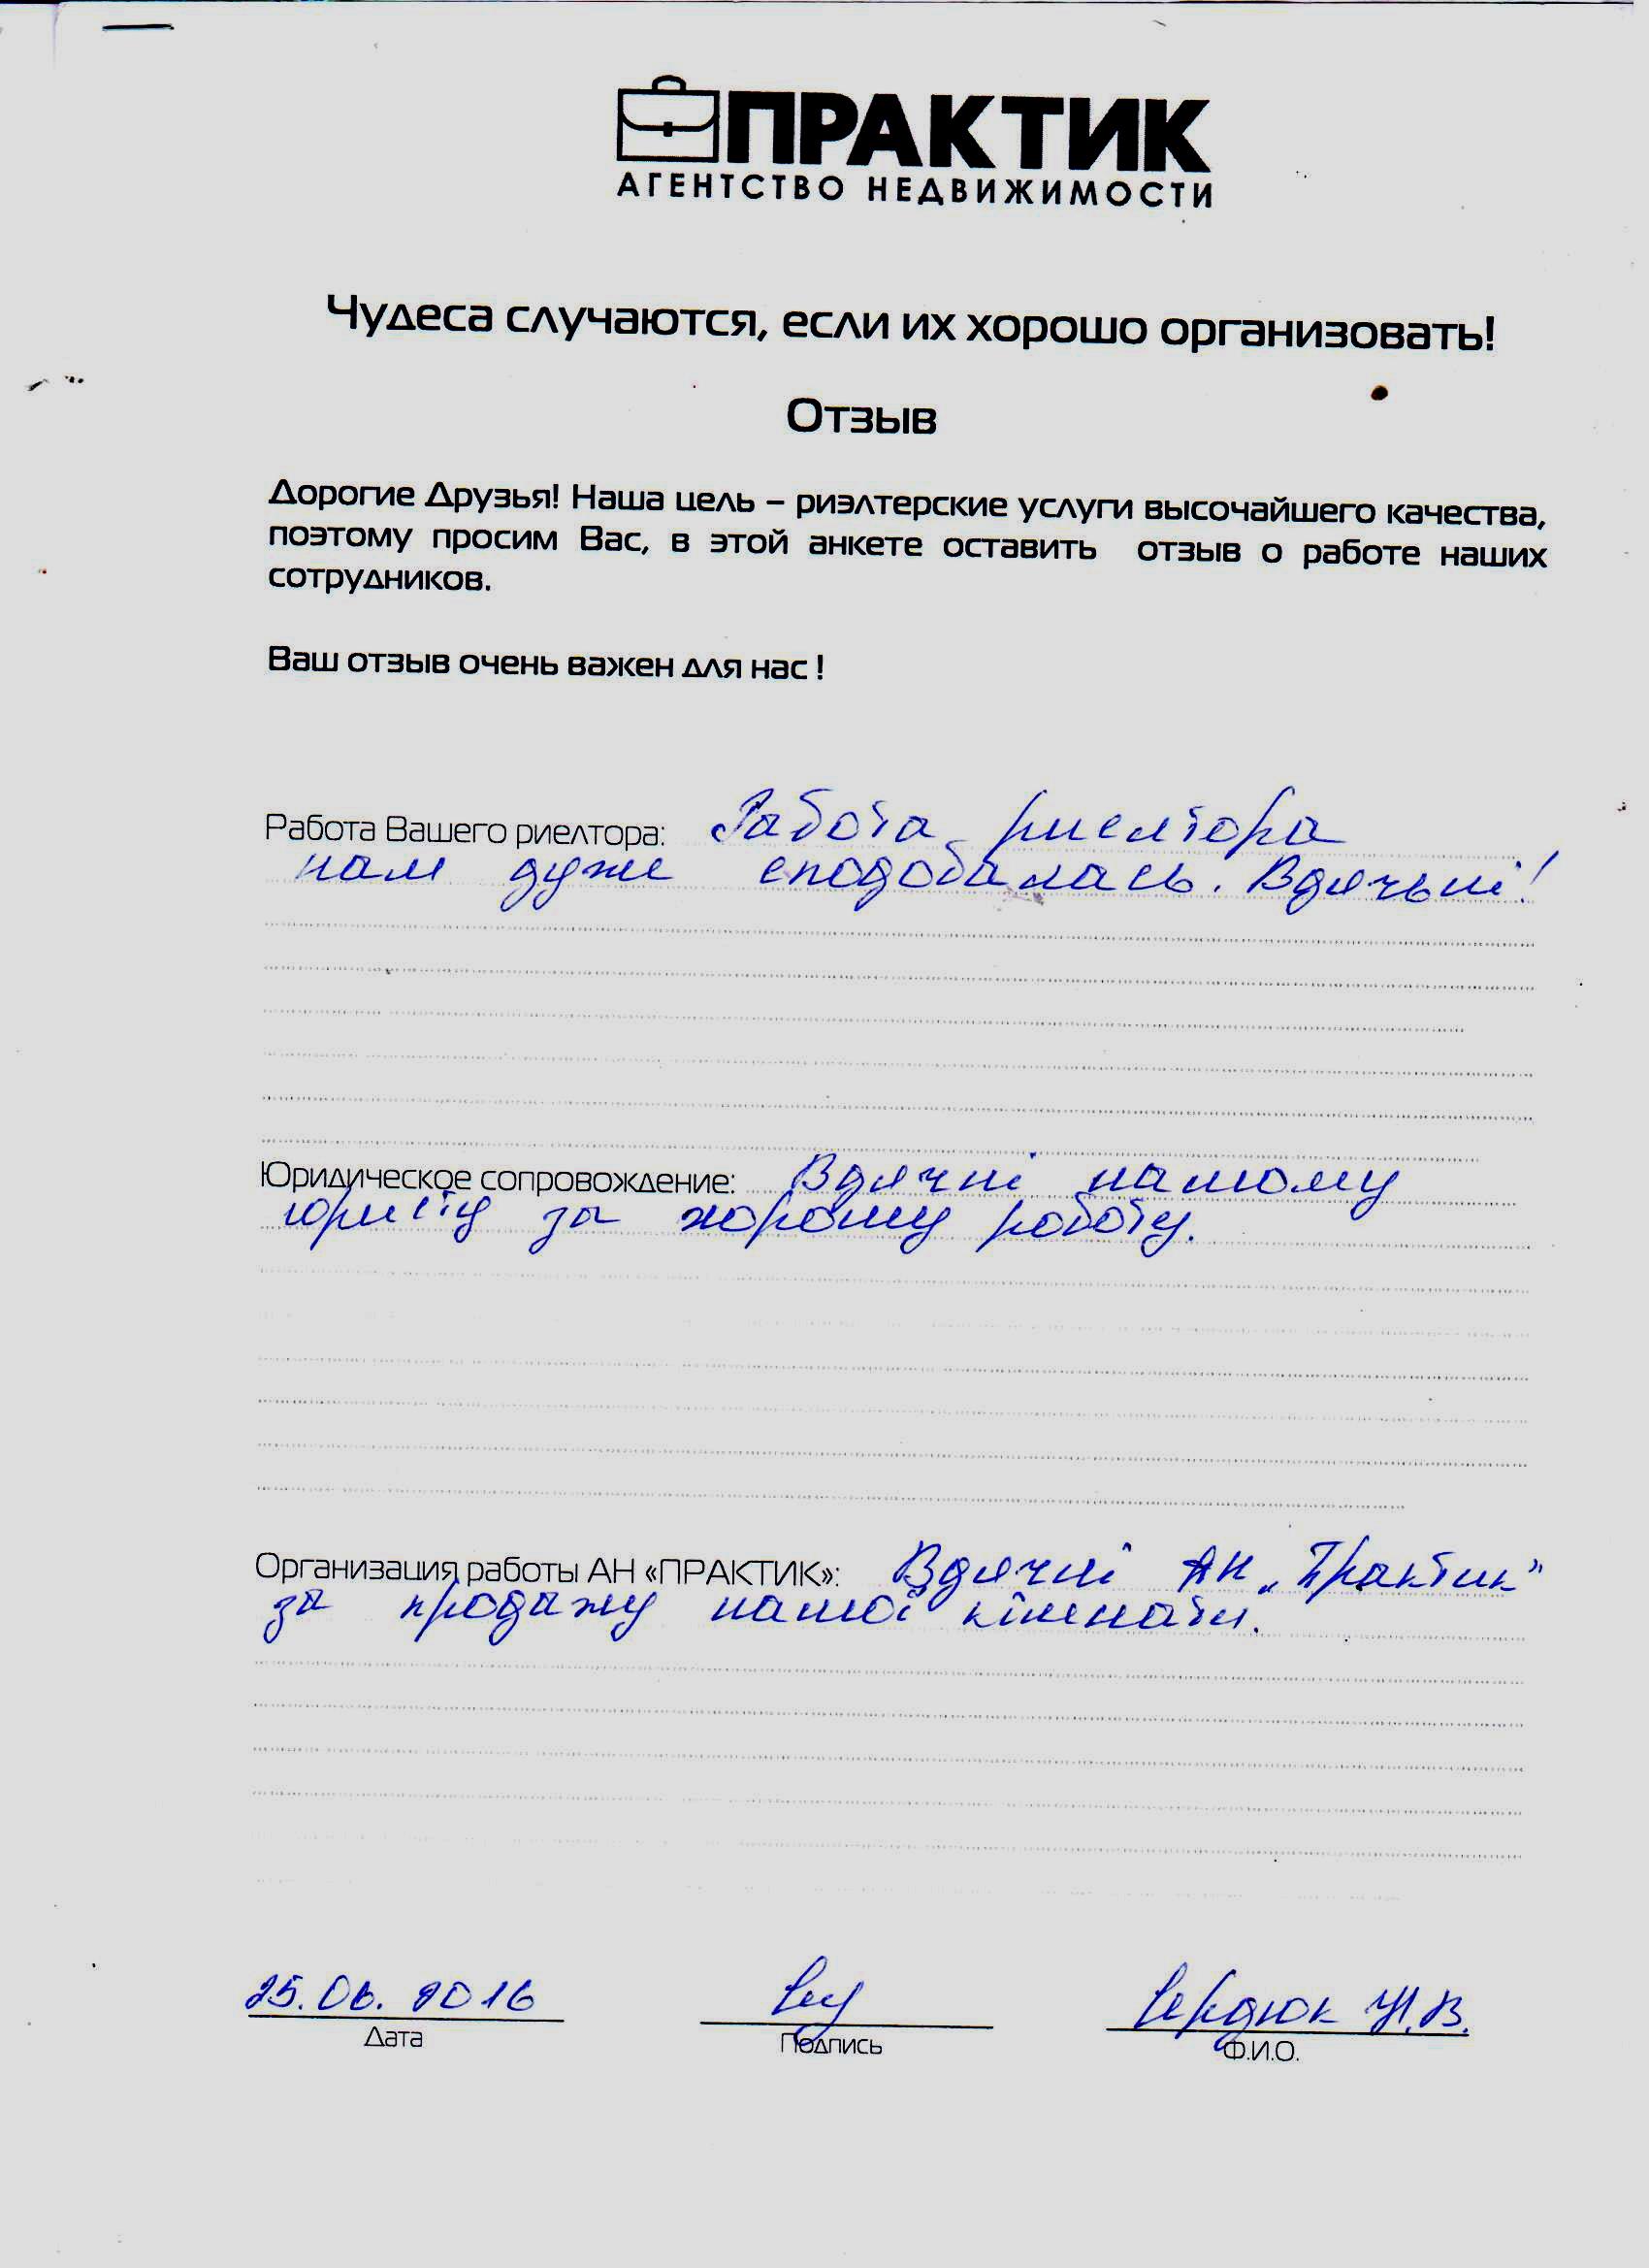 ПРАКТИК
АГЕНТСТВО НЕДВИЖИМОСТИ
Чудеса случаются, если их хорошо организовать!
Отзыв
Дорогие Друзья! Наша цель – риэлтерские услуги высочайшего качества,
поэтому просим Вас, в этой анкете оставить отзыв о работе наших
сотрудников.
Ваш отзыв очень важен для нас !
Работа Вашего риелтора: Работа риелтора
нам дуже сподобалась. Вдячьні!
Юридическое сопровождение: Вдячні нашому
юристу за хорошу роботу.
Организация работы АН «ПРАКТИК»: Вдячні АН „Практик”
за продажу нашої кімнати.
25.06.2016
Сердюк И.В.
Дата
Подпись
Ф.И.О.